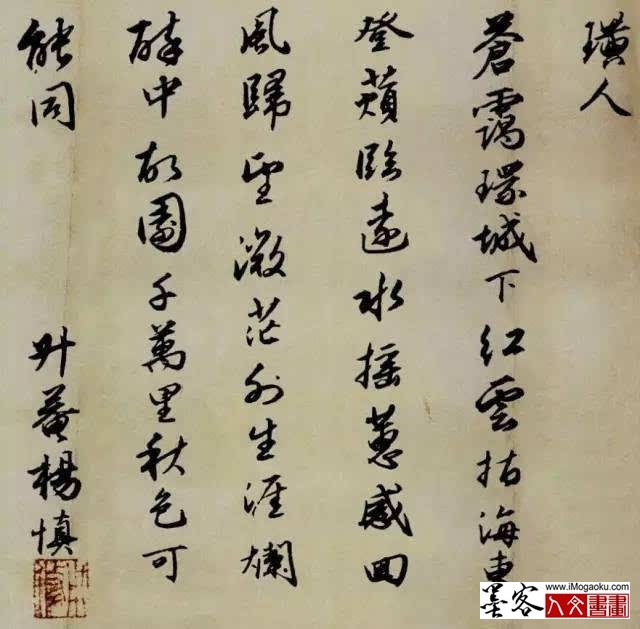 璜人
蒼靄環城下紅雲指海東
登蘋臨遠水搖蕙感回
風歸望微茫外生涯爛
醉中故園千萬里秋色可
能同 升菴楊慎
墨客
www.iMogaoku.com
人文書畫